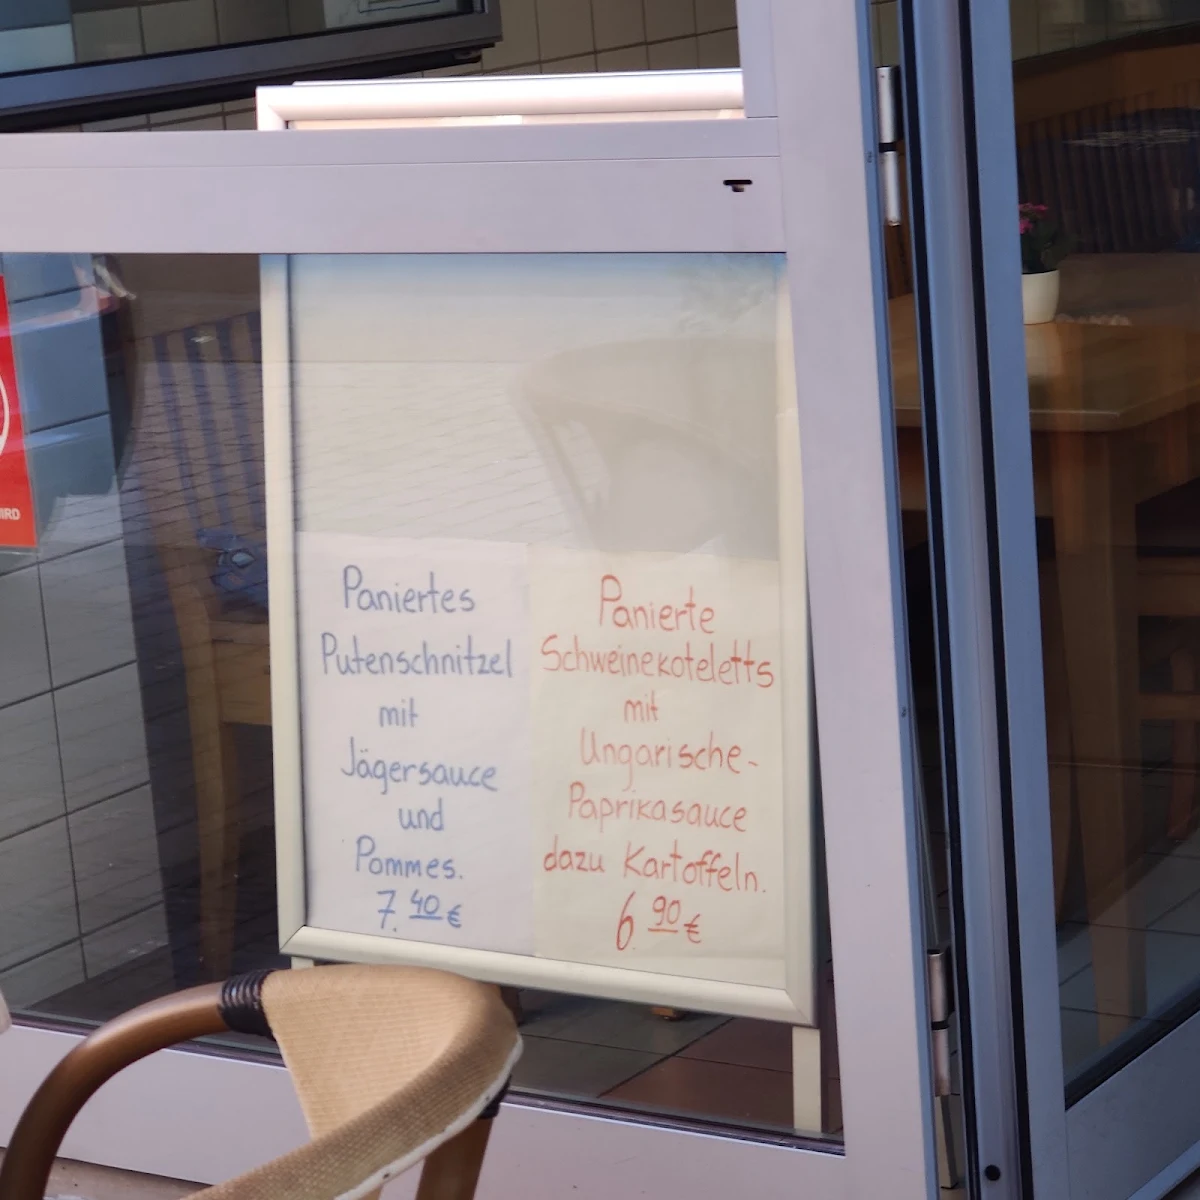 IRD
Paniertes
Putenschnitzel
mit
Jägersauce
und
Pommes.
7.40 €
Panierte
Schweinekoteletts
mit
Ungarische-
Paprikasauce
dazu Kartoffeln.
6.90 €